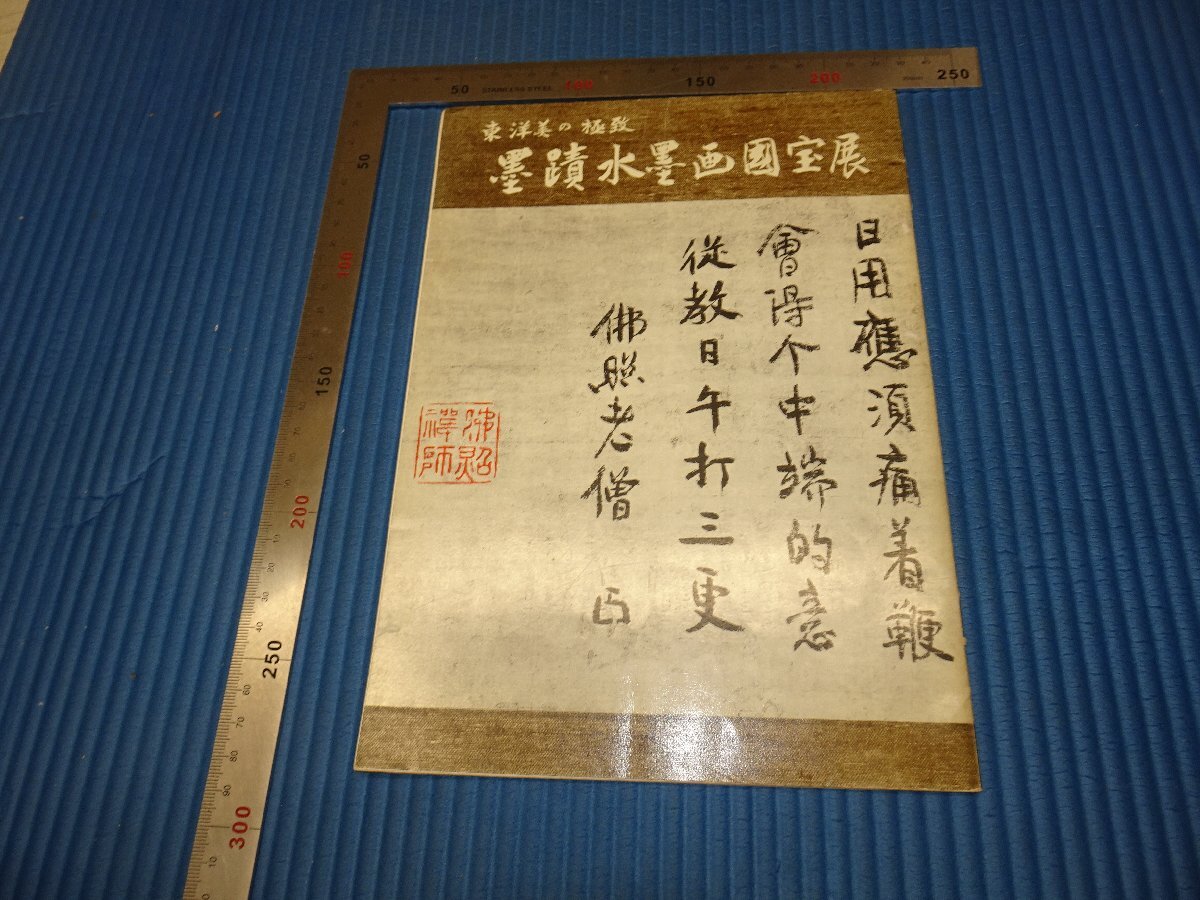 50 STAINLESS STEEL 100 150 200 250
50
100
150
200
250
300
東洋美の極致
墨蹟水墨画國宝展
日用應須痛着鞭
會得个中端的意
從教日午打三更
佛照老僧
佛照
禅師